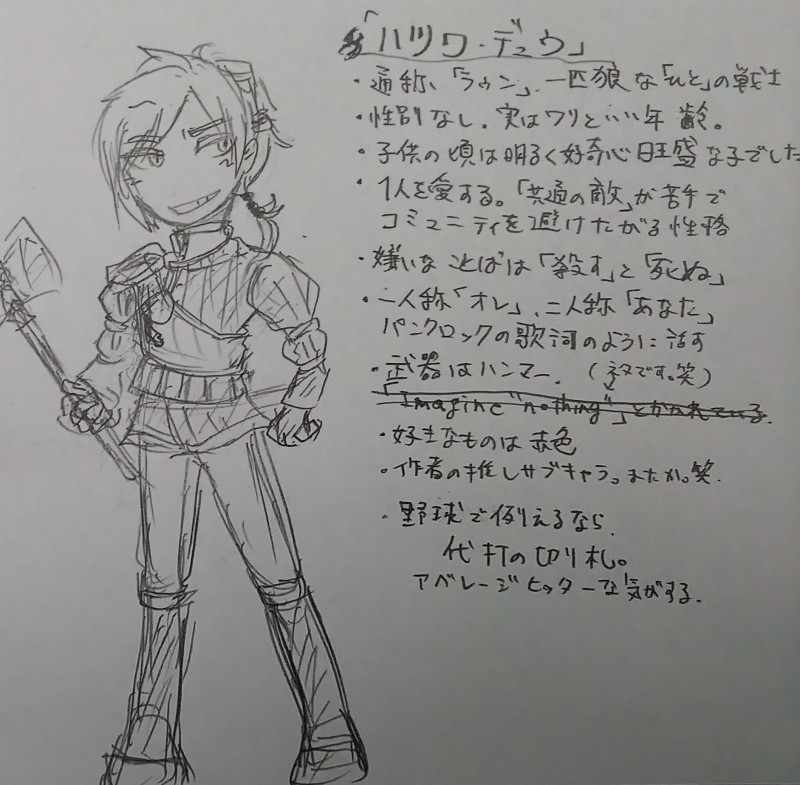 「ハツワ・デュウ」
・通称、「ラウン」、一匹狼な「ひと」の戦士
・性別なし、実はワリといい年齢。
・子供の頃は明るく好奇心旺盛な子でした
・1人を愛する。「共通の敵」が苦手で
コミュニティを避けたがる性格
・嫌いなことばは「殺す」と「死ぬ」
・一人称「オレ」、二人称「あなた」
パンクロックの歌詞のように話す
・武器はハンマー。(ネタです。笑)
「Imagine "nothing"」とかかれている。
・好きなものは赤色
・作者の推しサブキャラ。またか。笑
・野球で例えるなら、
代打の切り札。
アベレージヒッターな気がする。